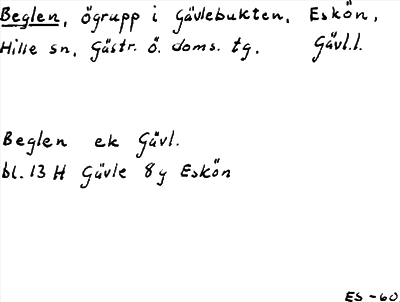 Beglen, ögrupp i Gävlebukten, Eskön,
Hille sn, Gästr. ö. doms. tg. Gävl.l.
Beglen ek Gävl.
bl. 13 H Gävle 8y Eskön
ES-60